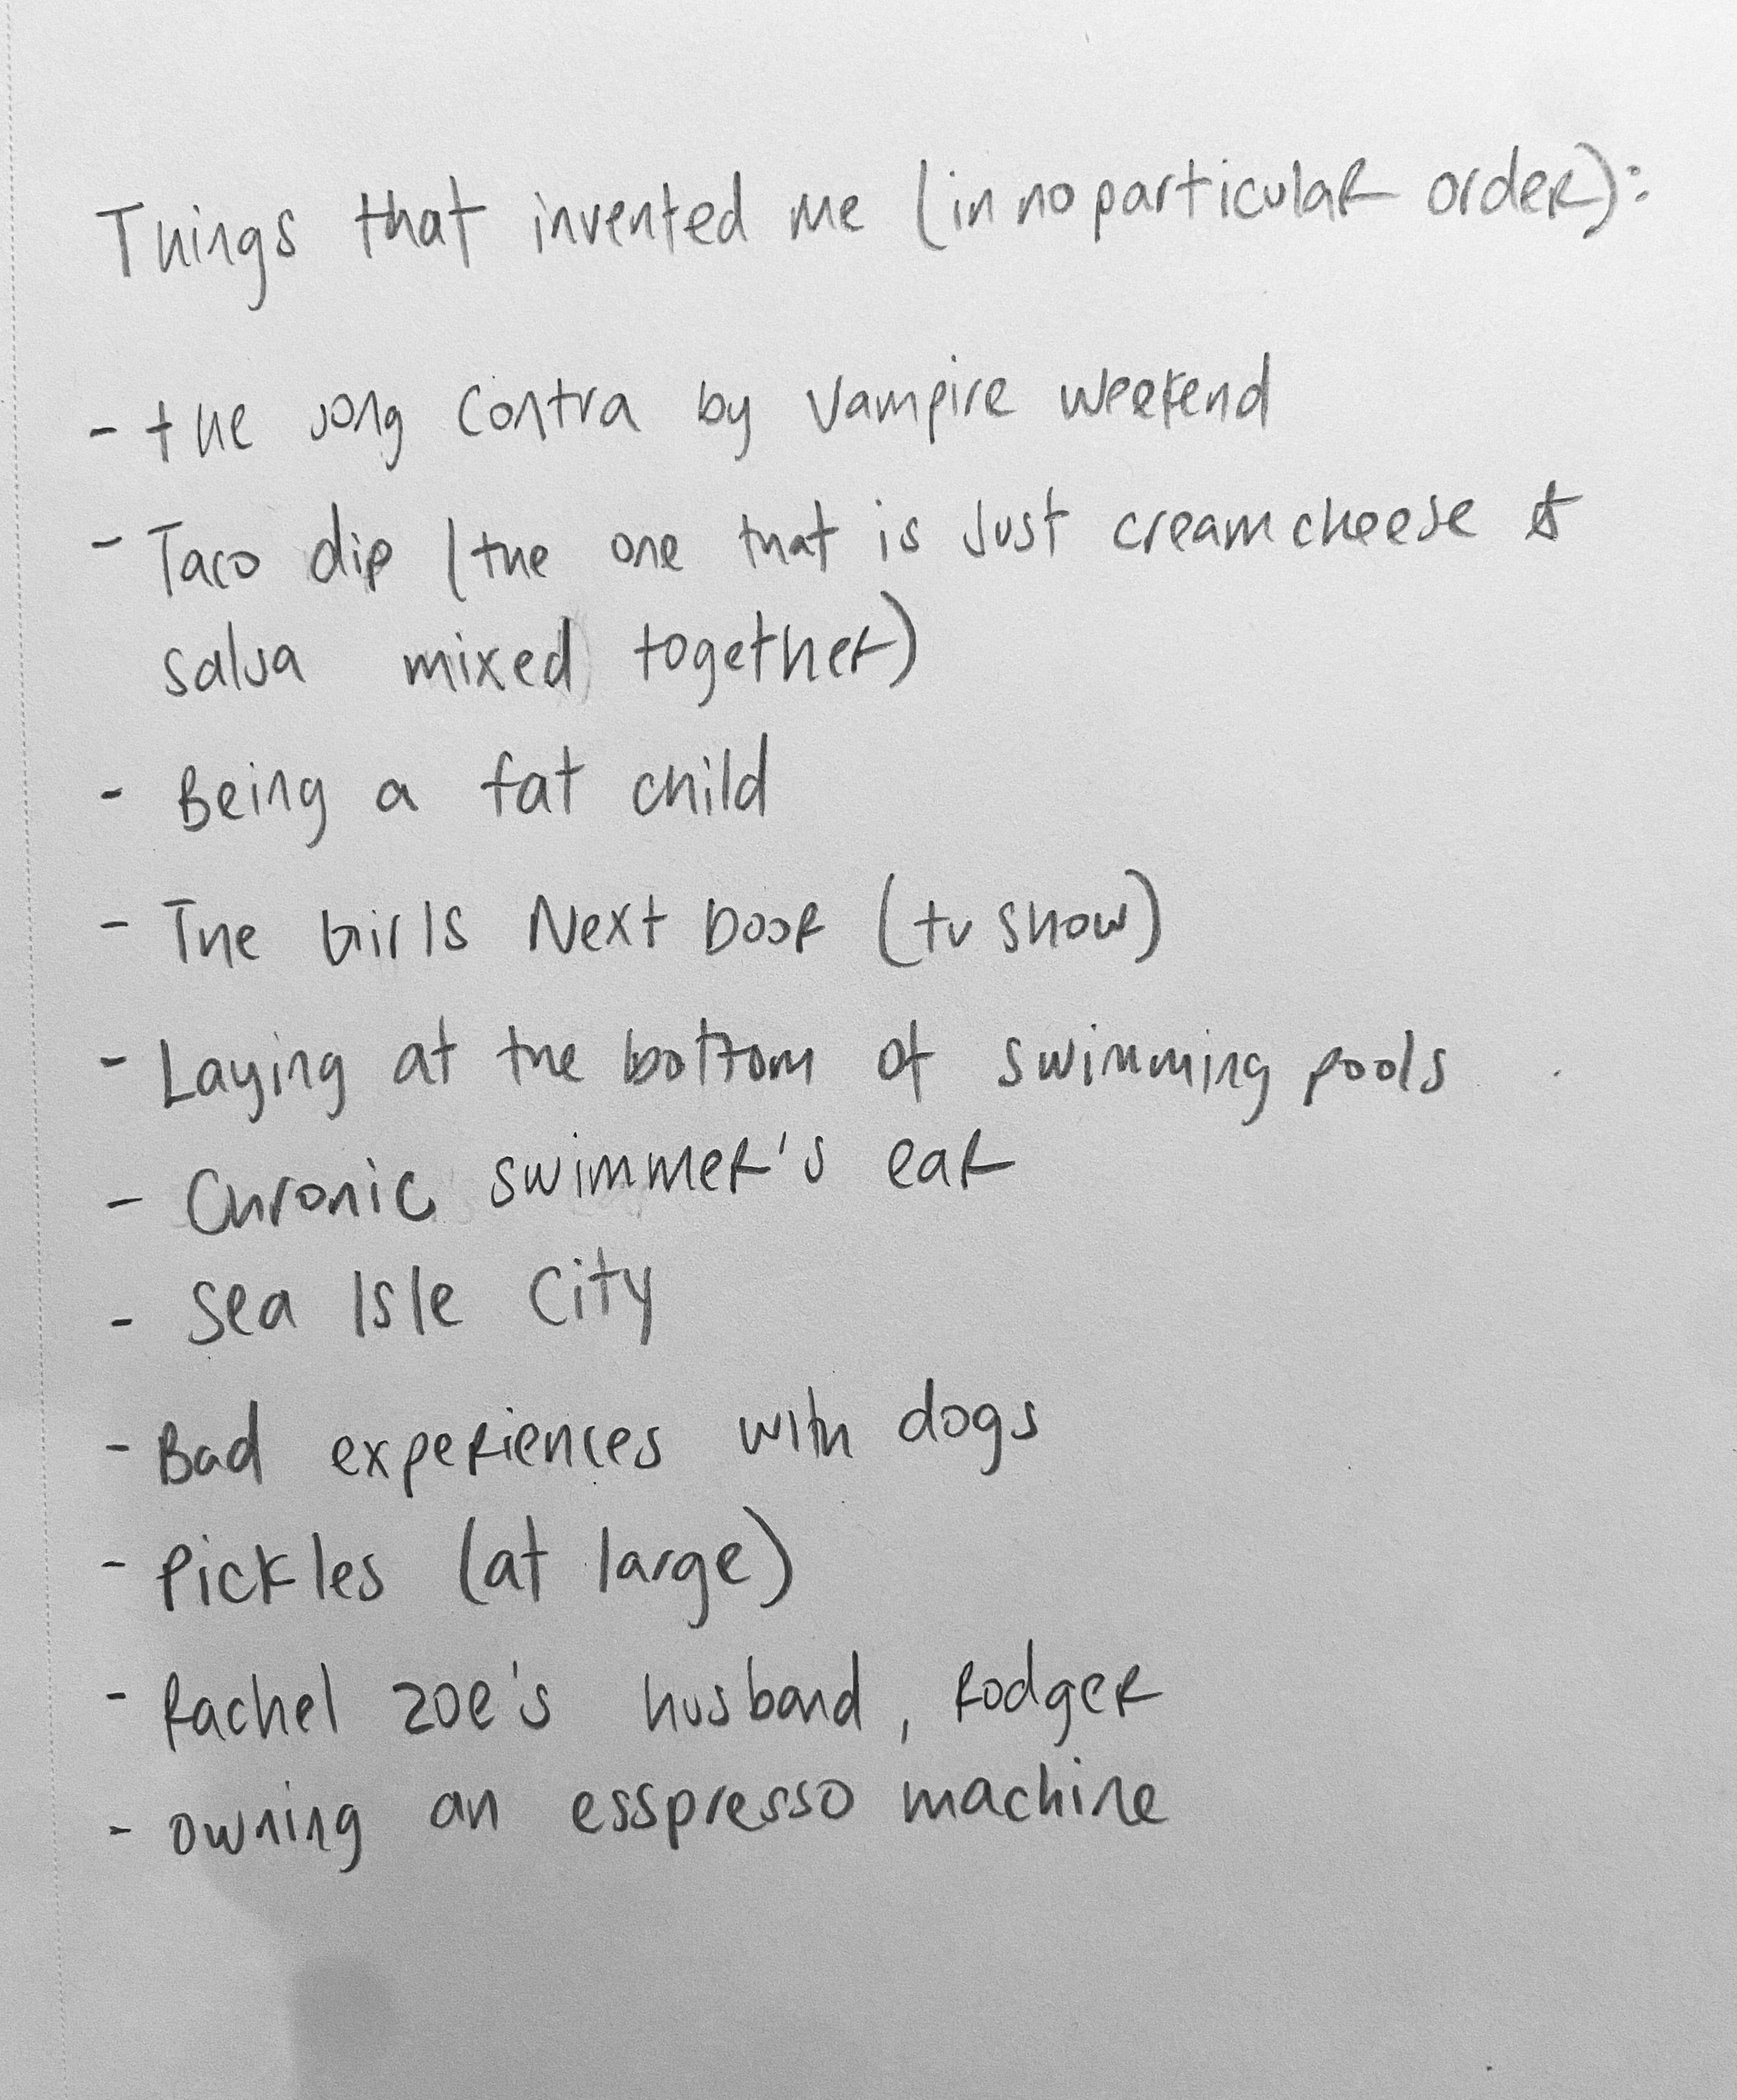 Things that invented me (in no particular order):
- the song Contra by Vampire weekend
- Taco dip (the one that is Just cream cheese &
salsa mixed together)
- Being a fat child
- The Girls Next Door (tv show)
- Laying at the bottom of swimming pools
- Chronic swimmer's ear
- Sea Isle City
- Bad experiences with dogs
- Pickles (at large)
- Rachel zoe's husband, Rodger
- owning an esspresso machine